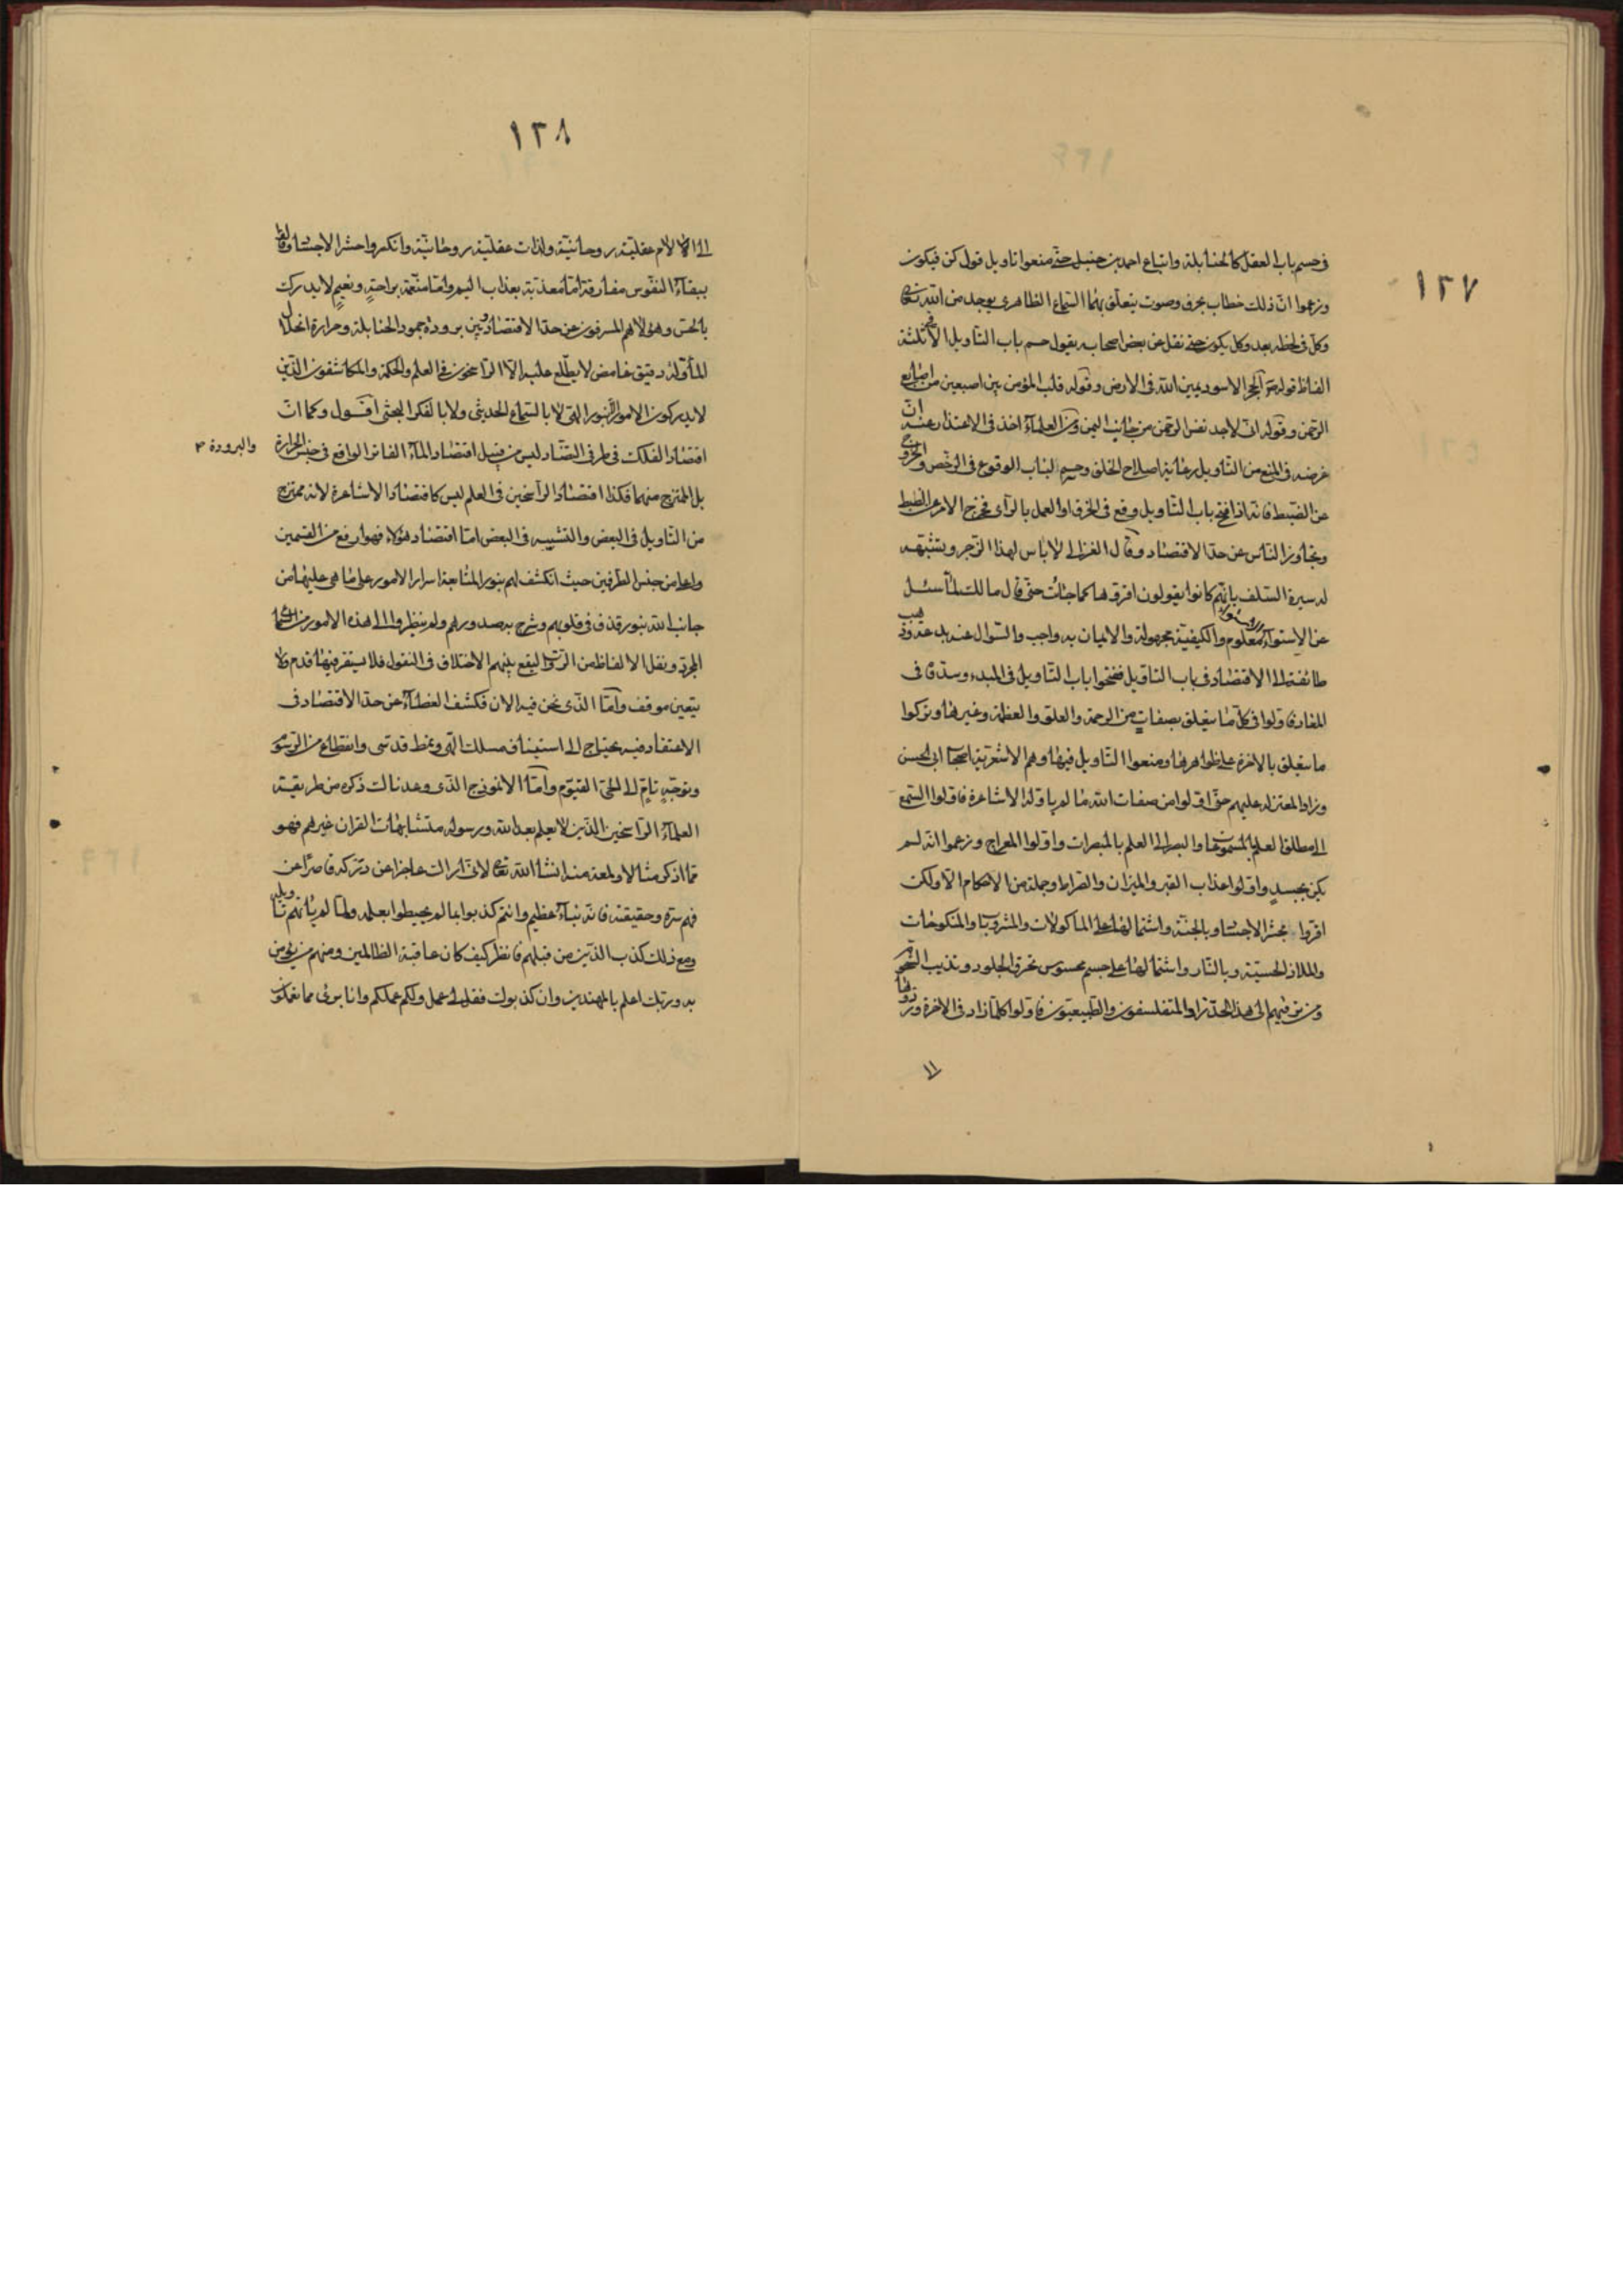 ١٢٧
فى حسم باب العقل كالحنابلة واتباع احمد بن حنبل حتى منعوا تاويل قول كن فيكون
وزعموا ان ذلك خطاب بحرف وصوت يتعلق بهما السماع الظاهرى يوجد من الله تعالى
فى كل لحظة بعدد كل مكون حتى نقل عن بعض اصحابه يقول حسم باب التاويل الا لثلثة
الفاظ قوله ص الحجر الاسود يمين الله فى الارض وقوله قلب المؤمن بين اصبعين من اصابع
الرحمن وقوله انى لاجد نفس الرحمن من جانب اليمن ومن العلماء اخذ فى الاعتذار عنه ان
غرضه فى المنع من التاويل رعاية اصلاح الخلق وحسم لباب الوقوع فى الرخص والخروج
عن الضبط فانه اذا فتح باب التاويل وقع فى الخرق او العمل بالراى فخرج الامر عن الضبط
وتجاوز الناس عن حد الاقتصاد وقال الغزالى لا باس لهذا الزجر ويشهد
له سيرة السلف بانهم كانوا يقولون اقروها كما جائت حتى قال مالك لما سئل
عن الاستواء الاستواء معلوم والكيفية مجهولة والايمان به واجب والسؤال عنه بدعة وذهب
طائفة الى الاقتصاد فى باب التاويل ففتحوا باب التاويل فى المبدء وسدوها فى
المعاد فاولوا فى كل ما يتعلق بصفات من الرحمة والعلو والعظمة وغيرها وتركوا
ما يتعلق بالاخرة على ظواهرها ومنعوا التاويل فيها وهم الاشعرية اصحاب ابى الحسن
وزاد المعتزلة عليهم حتى اولوا من صفات الله ما لم ياوله الاشاعرة فاولوا السمع
الى مطلق العلم بالمسموعات والبصر الى العلم بالمبصرات واولوا المعراج وزعموا انه لم
يكن بجسد واولوا عذاب القبر والميزان والصراط وجملة من الاحكام الا ولكن
اقروا بحشر الاجساد وبالجنة واشتمالها على الماكولات والمشروبات والمنكوحات
والملاذ الحسية وبالنار واشتمالها على جسم محسوس تحرق الجلود وتذيب الشحوم
ومن ترقيهم الى هذا الحد زاد المتفلسفون والطبيعيون فاولوا كلما ورد فى الاخرة وردوها
الى
١٢٨
الى الالام عقلية روحانية ولذات عقلية روحانية وانكروا حشر الاجساد وقالوا
ببقاء النفوس مفارقة اما معذبة بعذاب اليم واما منعمة براحة ونعيم لا يدرك
بالحس وهؤلاء هم المسرفون عن حد الاقتصاد وبين برودة جمود الحنابلة وحرارة انحلال
المأولة دقيق غامض لا يطلع عليه الا الراسخون فى العلم والحكمة والمكاشفون الذين
لا يدركون الامور الا بنور الهى لا بالسماع الحديثى ولا بالفكر البحثى اقول وكما ان
اقتصاد الفلك فى طرفى التضاد ليس من قبيل اقتصاد الماء الفاتر الواقع فى جنس الحرارة
والبرودة
بل الممتزج منهما فكذا اقتصاد الراسخين فى العلم ليس كاقتصاد الاشاعرة لانه ممتزج
من التاويل فى البعض والتشبيه فى البعض اما اقتصاد هؤلاء فهو ارفع من القسمين
واعلى من جنس الطرفين حيث انكشف لهم بنور المتابعة اسرار الامور على ما هى عليها من
جانب الله بنور قذف فى قلوبهم وشرح به صدورهم ولم ينظروا الى هذه الامور من السماع
المجرد ونقل الالفاظ من الرواة ليقع بينهم الاختلاف فى النقول فلا يستقر فيها قدم ولا
يتعين موقف واما الذى نحن فيه الان فكشف الغطاء عن حد الاقتصاد فى
الاعتقاد فيه يحتاج الى استيناف مسلك الهى ونمط قدسى وانقطاع من الرسوم
وتوجه تام الى الحى القيوم واما الانموذج الذى وعدناك ذكره من طريقة
العلماء الراسخين الذين لا يعلم بعد الله ورسوله متشابهات القران غيرهم فهو
مما اذكر مثالا ولمعة منه انشاء الله تعالى لانى اراك عاجزا عن دركه قاصرا عن
فهم سره وحقيقته فانه نباء عظيم وانتم كذبوا بما لم يحيطوا بعلمه ولما ياتهم تاويله
ومع ذلك كذب الذين من قبلهم فانظر كيف كان عاقبة الظالمين ومنهم من يؤمن
به وربك اعلم بالمهتدين وان كذبوك فقل لى عملى ولكم عملكم وانا برئ مما تعملون